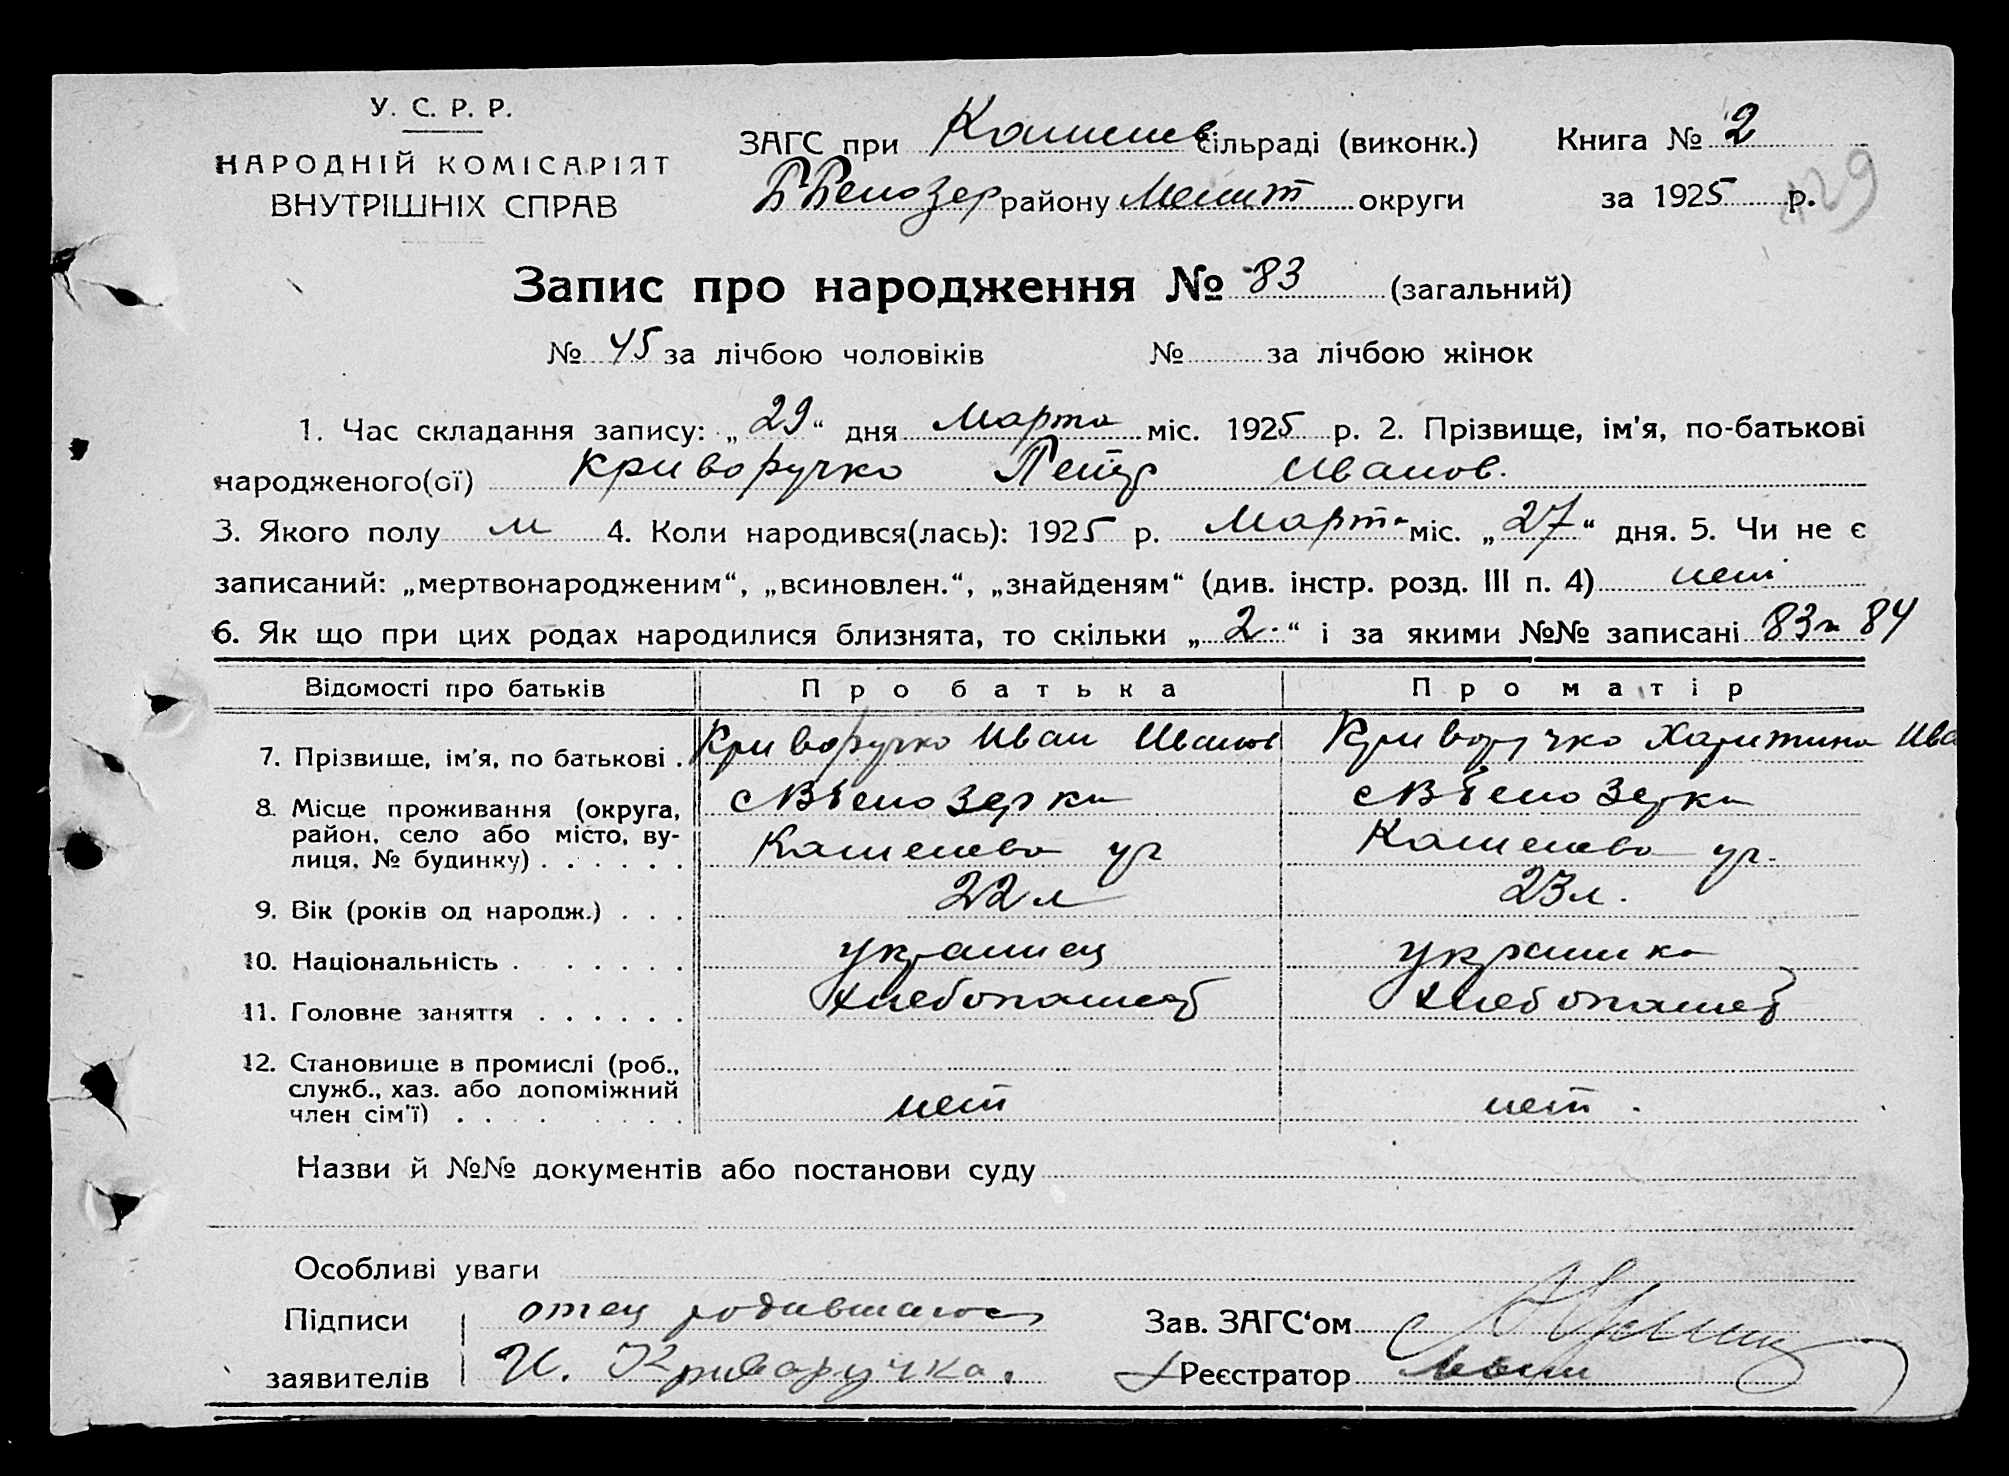 У. С. Р. Р.
НАРОДНІЙ КОМІСАРІЯТ
ВНУТРІШНІХ СПРАВ
ЗАГС при Камышев сільраді (виконк.)
ББелозер району Мелит округи
Книга № 2
за 1925 р.
129
Запис про народження № 83 (загальний)
№ 45 за лічбою чоловіків № за лічбою жінок
1. Час складання запису: „29“ дня Марта міс. 1925 р. 2. Прізвище, ім'я, по-батькові
народженого(ої) Криворучко Петр Иванов.
3. Якого полу м 4. Коли народився(лась): 1925 р. Марта міс. „27“ дня. 5. Чи не є
записаний: „мертвонародженим“, „всиновлен.“, „знайденям“ (див. інстр. розд. III п. 4) нет
6. Як що при цих родах народилися близнята, то скільки „2.“ і за якими №№ записані 83и 84
Відомості про батьків Про батька Про матір
7. Прізвище, ім'я, по батькові . Криворучко Иван Иванов Криворучко Харитина Ива
8. Місце проживання (округа, район, село або місто, вулиця, № будинку) . . . . . . с ВБелозерка с ВБелозерка
9. Вік (років од народж.) . . . 22 л 23 л.
10. Національність . . . . . . . украинец украинка
11. Головне заняття . . . . . . хлебопашеб хлебопашеб
12. Становище в промислі (роб., служб., хаз. або допоміжний член сім'ї) . . . . . . . . нет нет.
Назви й №№ документів або постанови суду
Особливі уваги
Підписи отец родившагося Зав. ЗАГС‘ом
заявителів И. Криворучка. Реєстратор